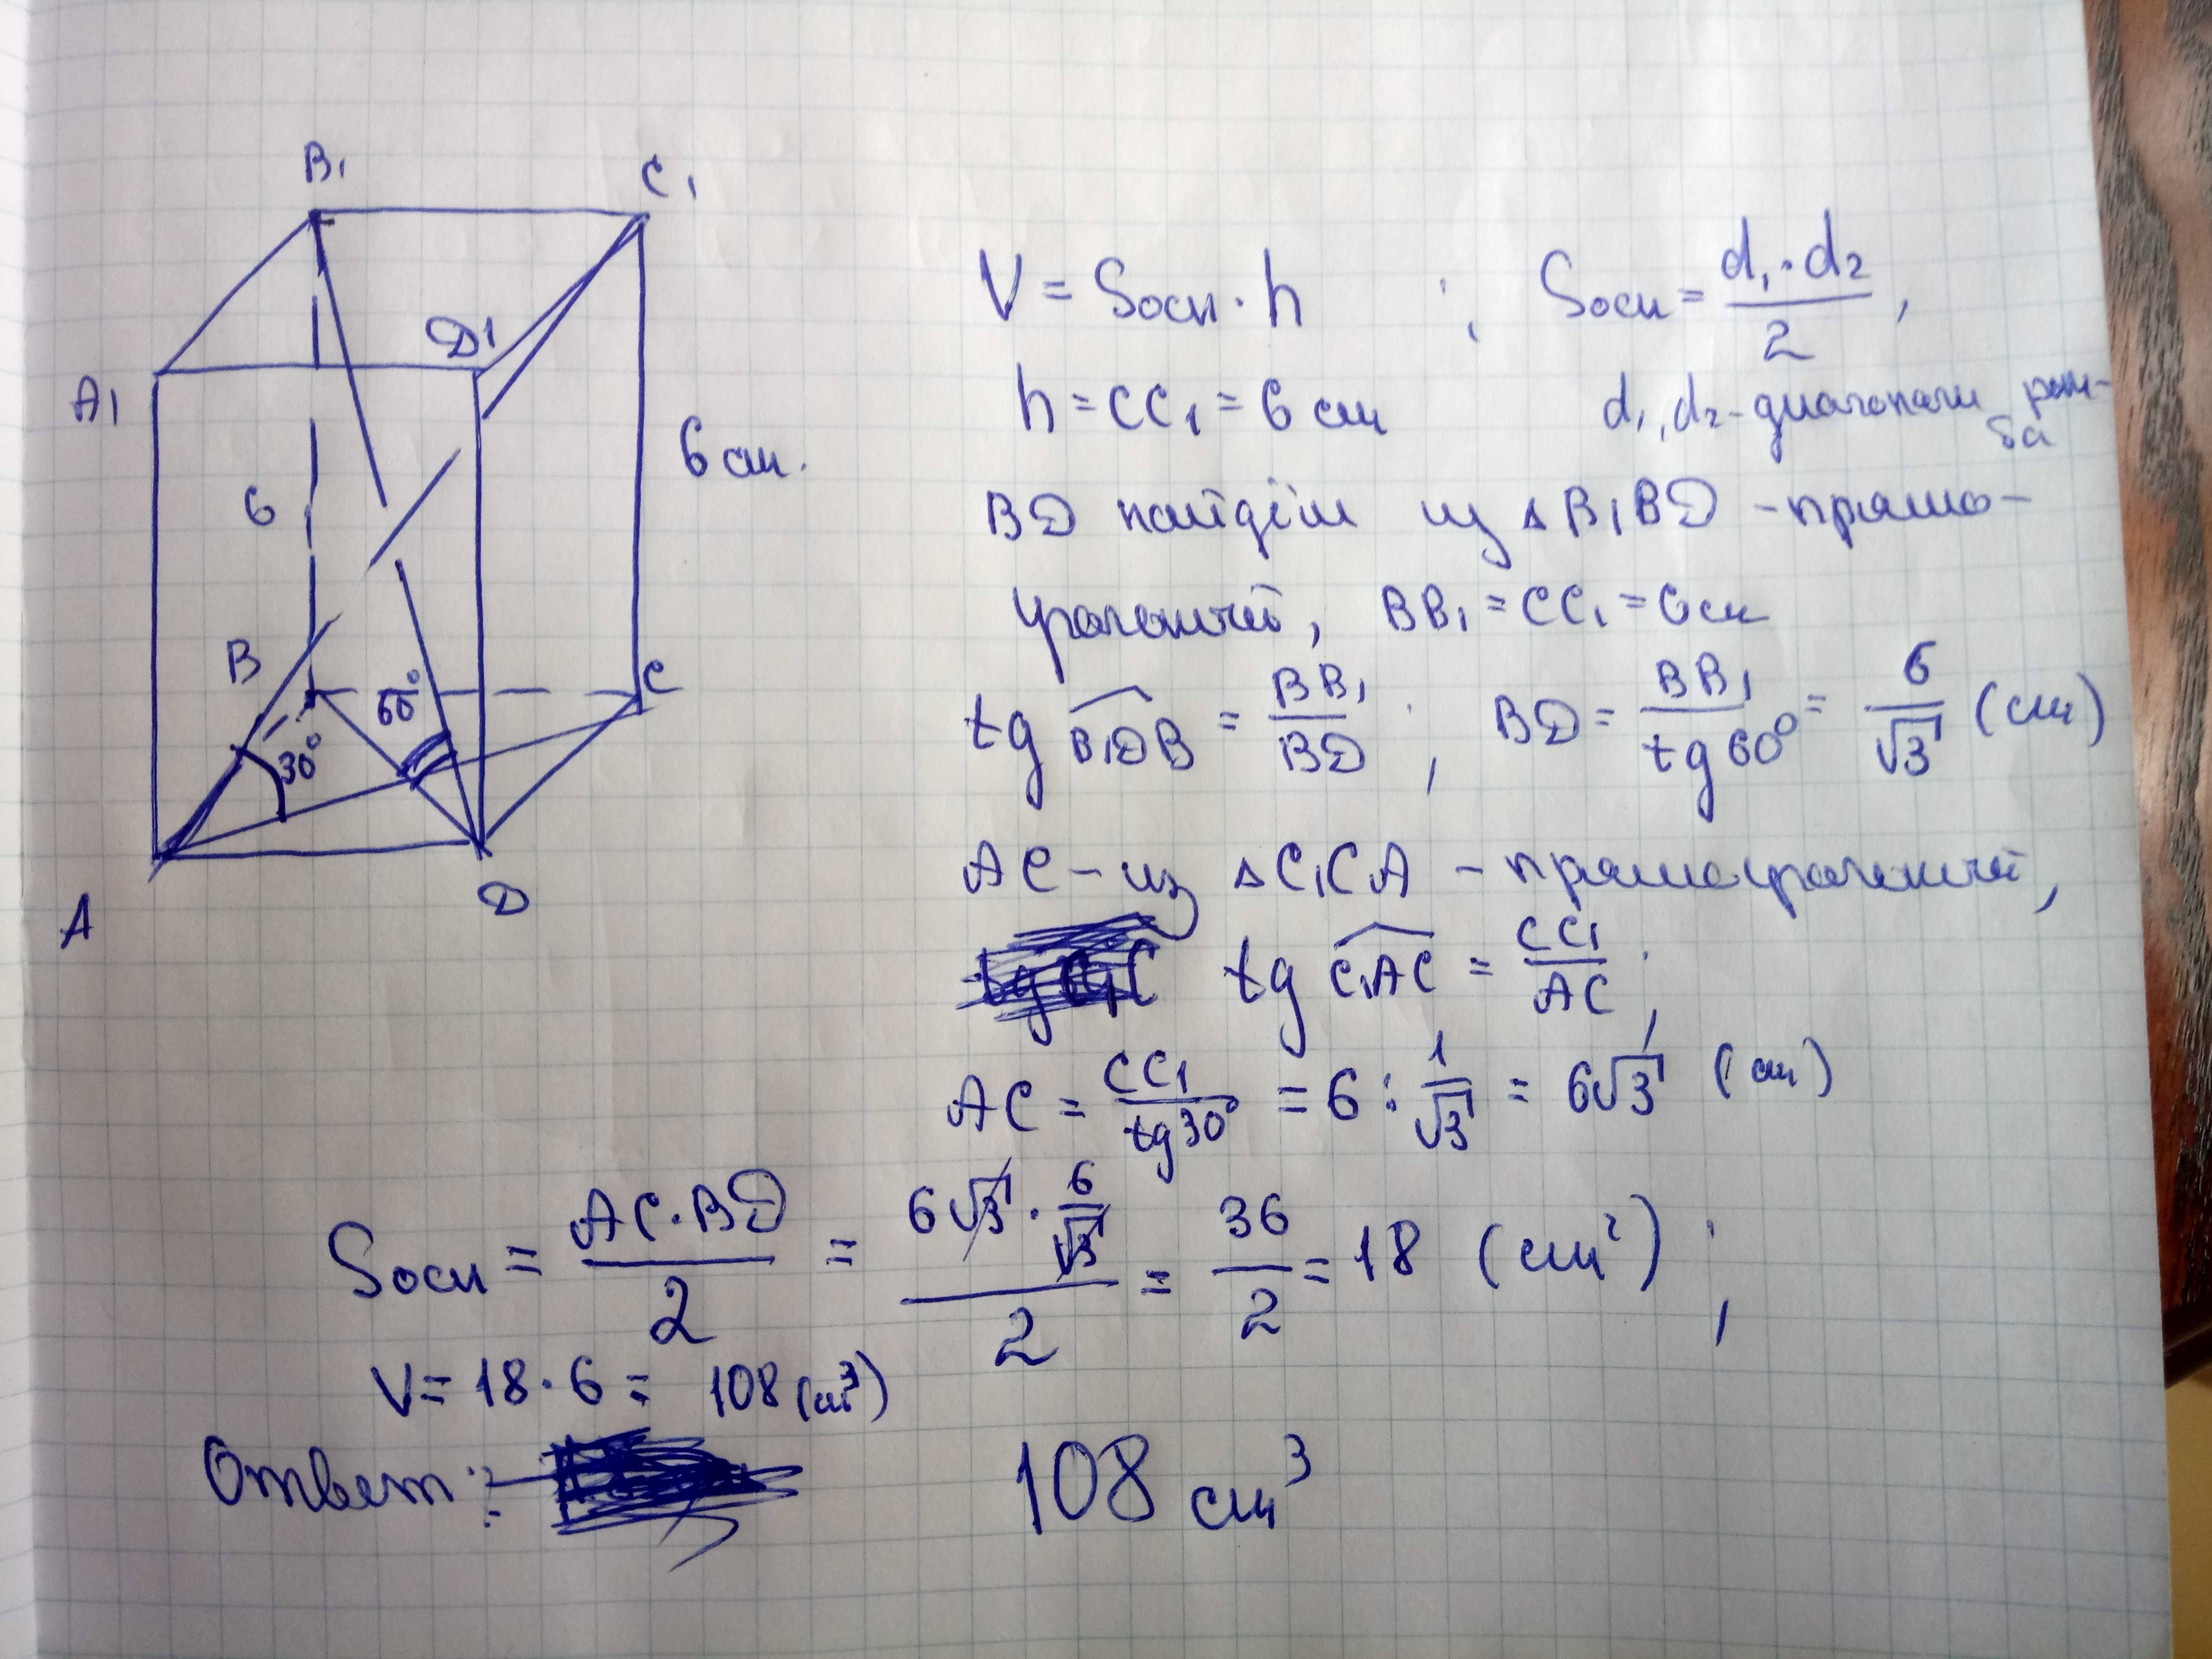 B₁ C₁
A₁ D₁
6 6 см.
B 60° C
30°
A D
V = Sосн · h ; Sосн = d₁·d₂/2 ,
h = CC₁ = 6 см d₁, d₂ - диагонали ром-
ба
BD найдём из ΔB₁BD - прямо-
угольный, BB₁ = CC₁ = 6см
tg B₁DB = BB₁/BD ; BD = BB₁/tg60° = 6/√3 (см)
AC - из ΔC₁CA - прямоугольный,
tg C₁AC = CC₁/AC ;
AC = CC₁/tg30° = 6 : 1/√3 = 6√3 (см)
Sосн = AC·BD/2 = 6√3 · 6/√3 / 2 = 36/2 = 18 (см²) ;
V = 18 · 6 = 108 (см³)
Ответ : 108 см³